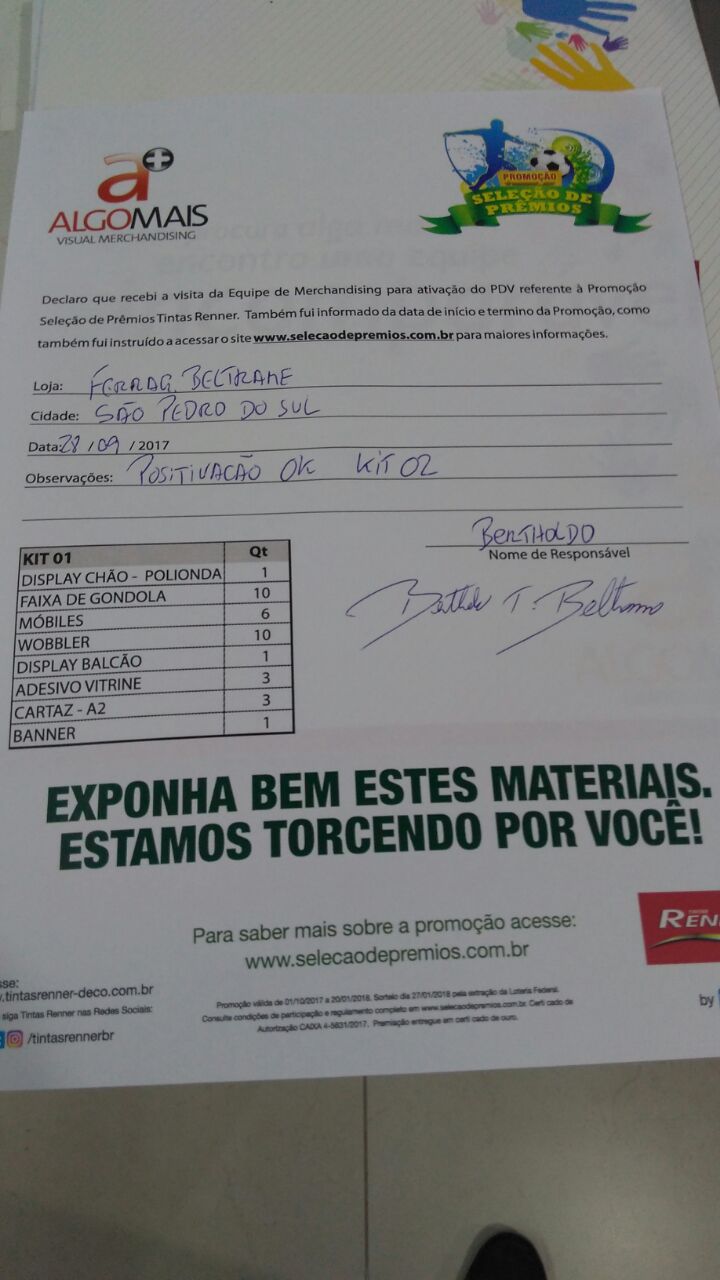 a+
ALGOMAIS
VISUAL MERCHANDISING
PROMOÇÃO
SELEÇÃO DE
PRÊMIOS
Declaro que recebi a visita da Equipe de Merchandising para ativação do PDV referente à Promoção
Seleção de Prêmios Tintas Renner. Também fui informado da data de início e termino da Promoção, como
também fui instruído a acessar o site www.selecaodepremios.com.br para maiores informações.
Loja: FERRAG. BELTRAME
Cidade: SÃO PEDRO DO SUL
Data: 28 / 09 / 2017
Observações: POSITIVACÃO OK KIT 02
BERTHOLDO
Nome de Responsável
KIT 01 Qt
DISPLAY CHÃO - POLIONDA 1
FAIXA DE GONDOLA 10
MÓBILES 6
WOBBLER 10
DISPLAY BALCÃO 1
ADESIVO VITRINE 3
CARTAZ - A2 3
BANNER 1
EXPONHA BEM ESTES MATERIAIS.
ESTAMOS TORCENDO POR VOCÊ!
Para saber mais sobre a promoção acesse:
www.selecaodepremios.com.br
REN
sse:
.tintasrenner-deco.com.br
siga Tintas Renner nas Redes Sociais:
/tintasrennerbr
Promoção válida de 01/10/2017 a 20/01/2018. Sorteio dia 27/01/2018 pela extração da Loteria Federal.
Consulte condições de participação e regulamento completo em www.selecaodepremios.com.br. Certi cado de
Autorização CAIXA 4-5631/2017. Premiação entregue em certi cado de ouro.
by